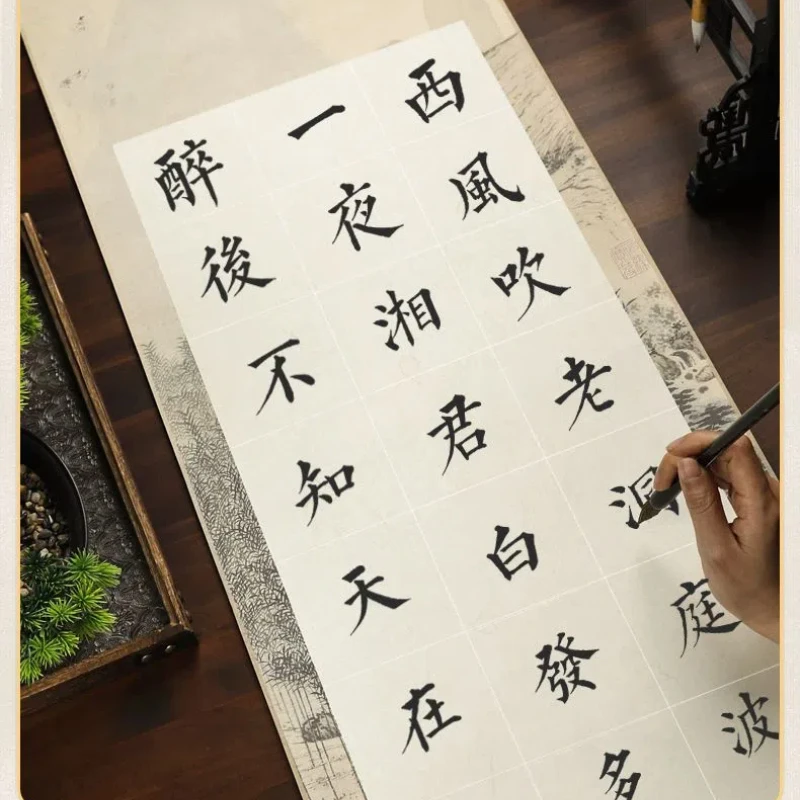 西風吹老洞庭波
一夜湘君白發多
醉後不知天在